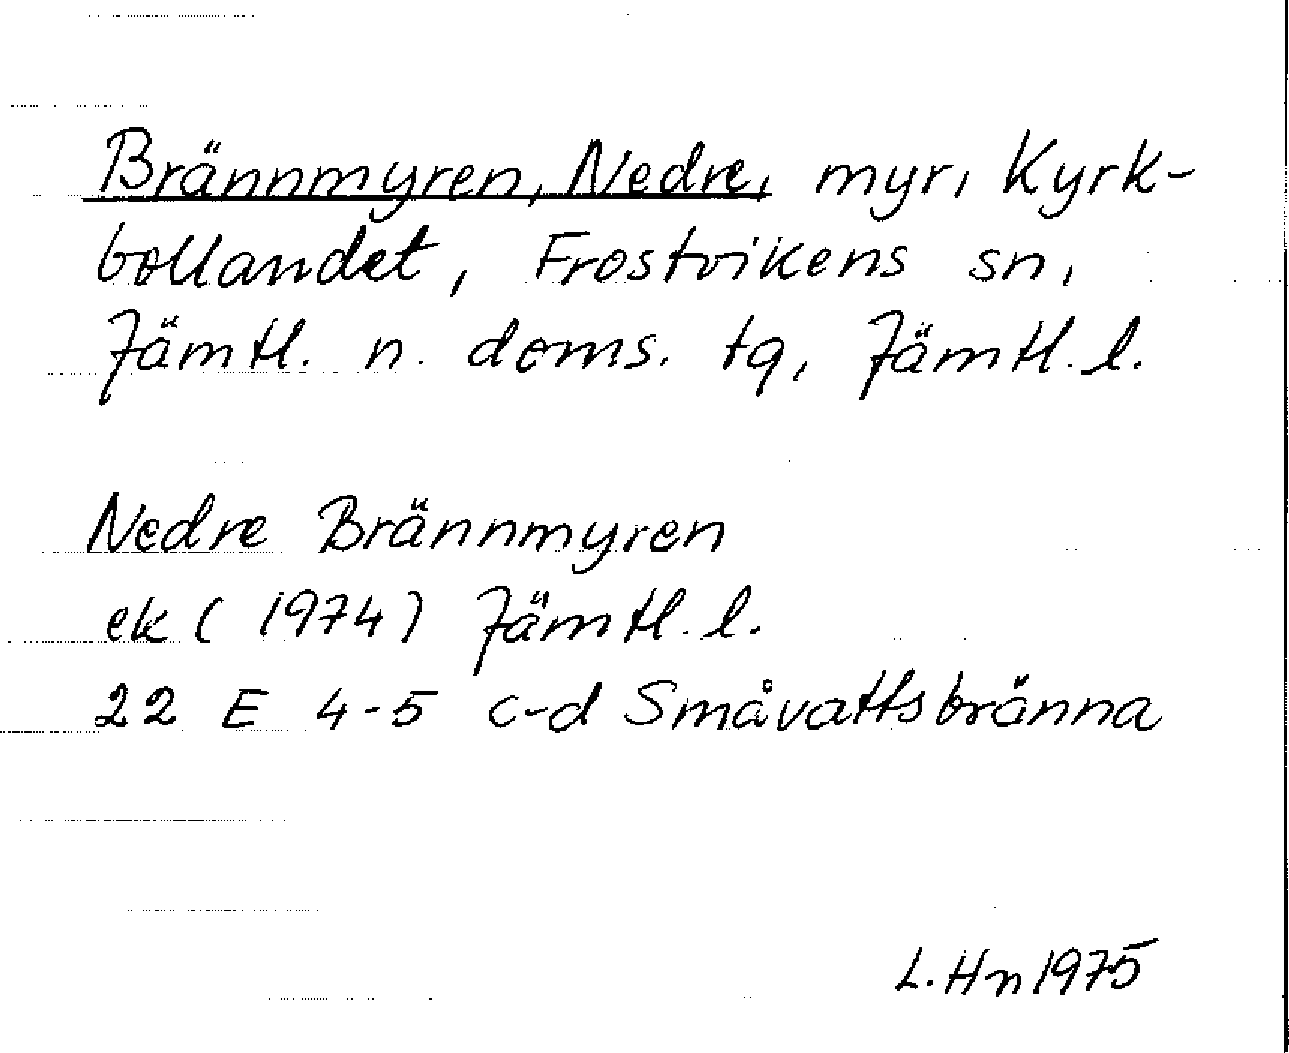 Brännmyren, Nedre, myr, Kyrk-
bollandet, Frostvikens sn,
Jämtl. n. doms. tg, Jämtl. l.
Nedre Brännmyren
ek (1974) Jämtl. l.
22 E 4-5 c-d Småvattsbränna
L.Hn 1975